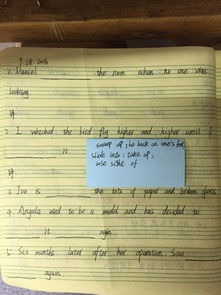 9.28.2016
1. Daniel ______ the room when no one was
looking.
2. I watched the bird fly higher and higher until I
______ it.
sweep up; be back on one's feet
slide into; take up;
lose sight of
3. Joe is ______ the bits of paper and broken glass
4. Angela used to be a model and has decided to
______ it again.
5. Six months later after her operation, Sue
______ again